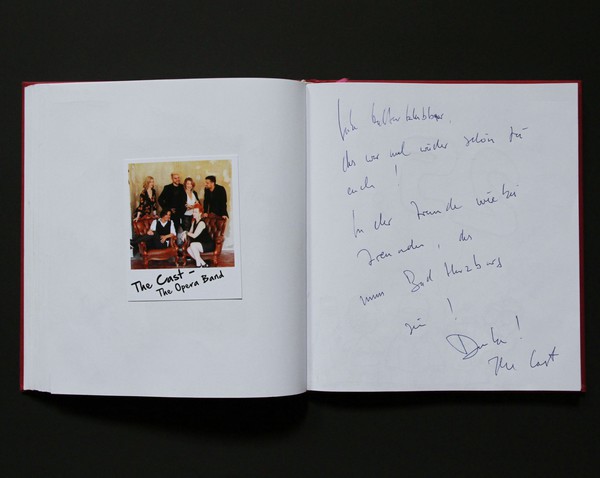 The Cast –
The Opera Band
Liebe Kulturklubber,
das war mal wieder schön für
euch!
In der Fremde wie bei
Freunden, das
muss Bad Harzburg
sein!
Danke!
The Cast